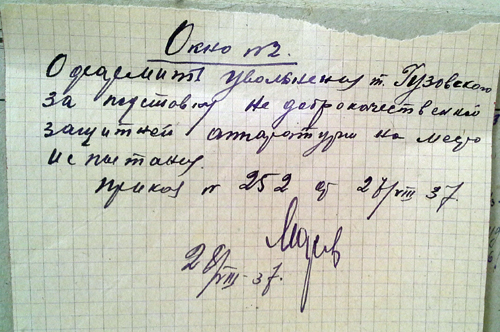 Окно №2.
Оформить увольнения т. Гузовского
за подставку не доброкачественной
защитней аппаратуры на место
испытания.
Приказ № 252 от 28/VIII 37.
28/VIII-37.